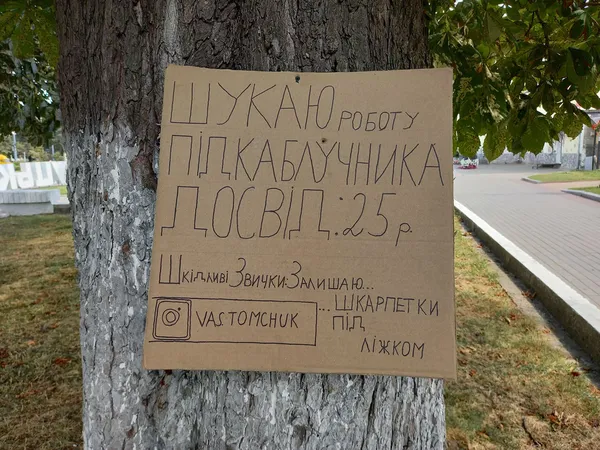 ШУКАЮ РОБОТУ
ПІДКАБЛУЧНИКА
ДОСВІД: 25 р.
Шкідливі Звички: Залишаю...
...ШКАРПЕТКИ
VAS.TOMCHUK ПІД
ЛІЖКОМ